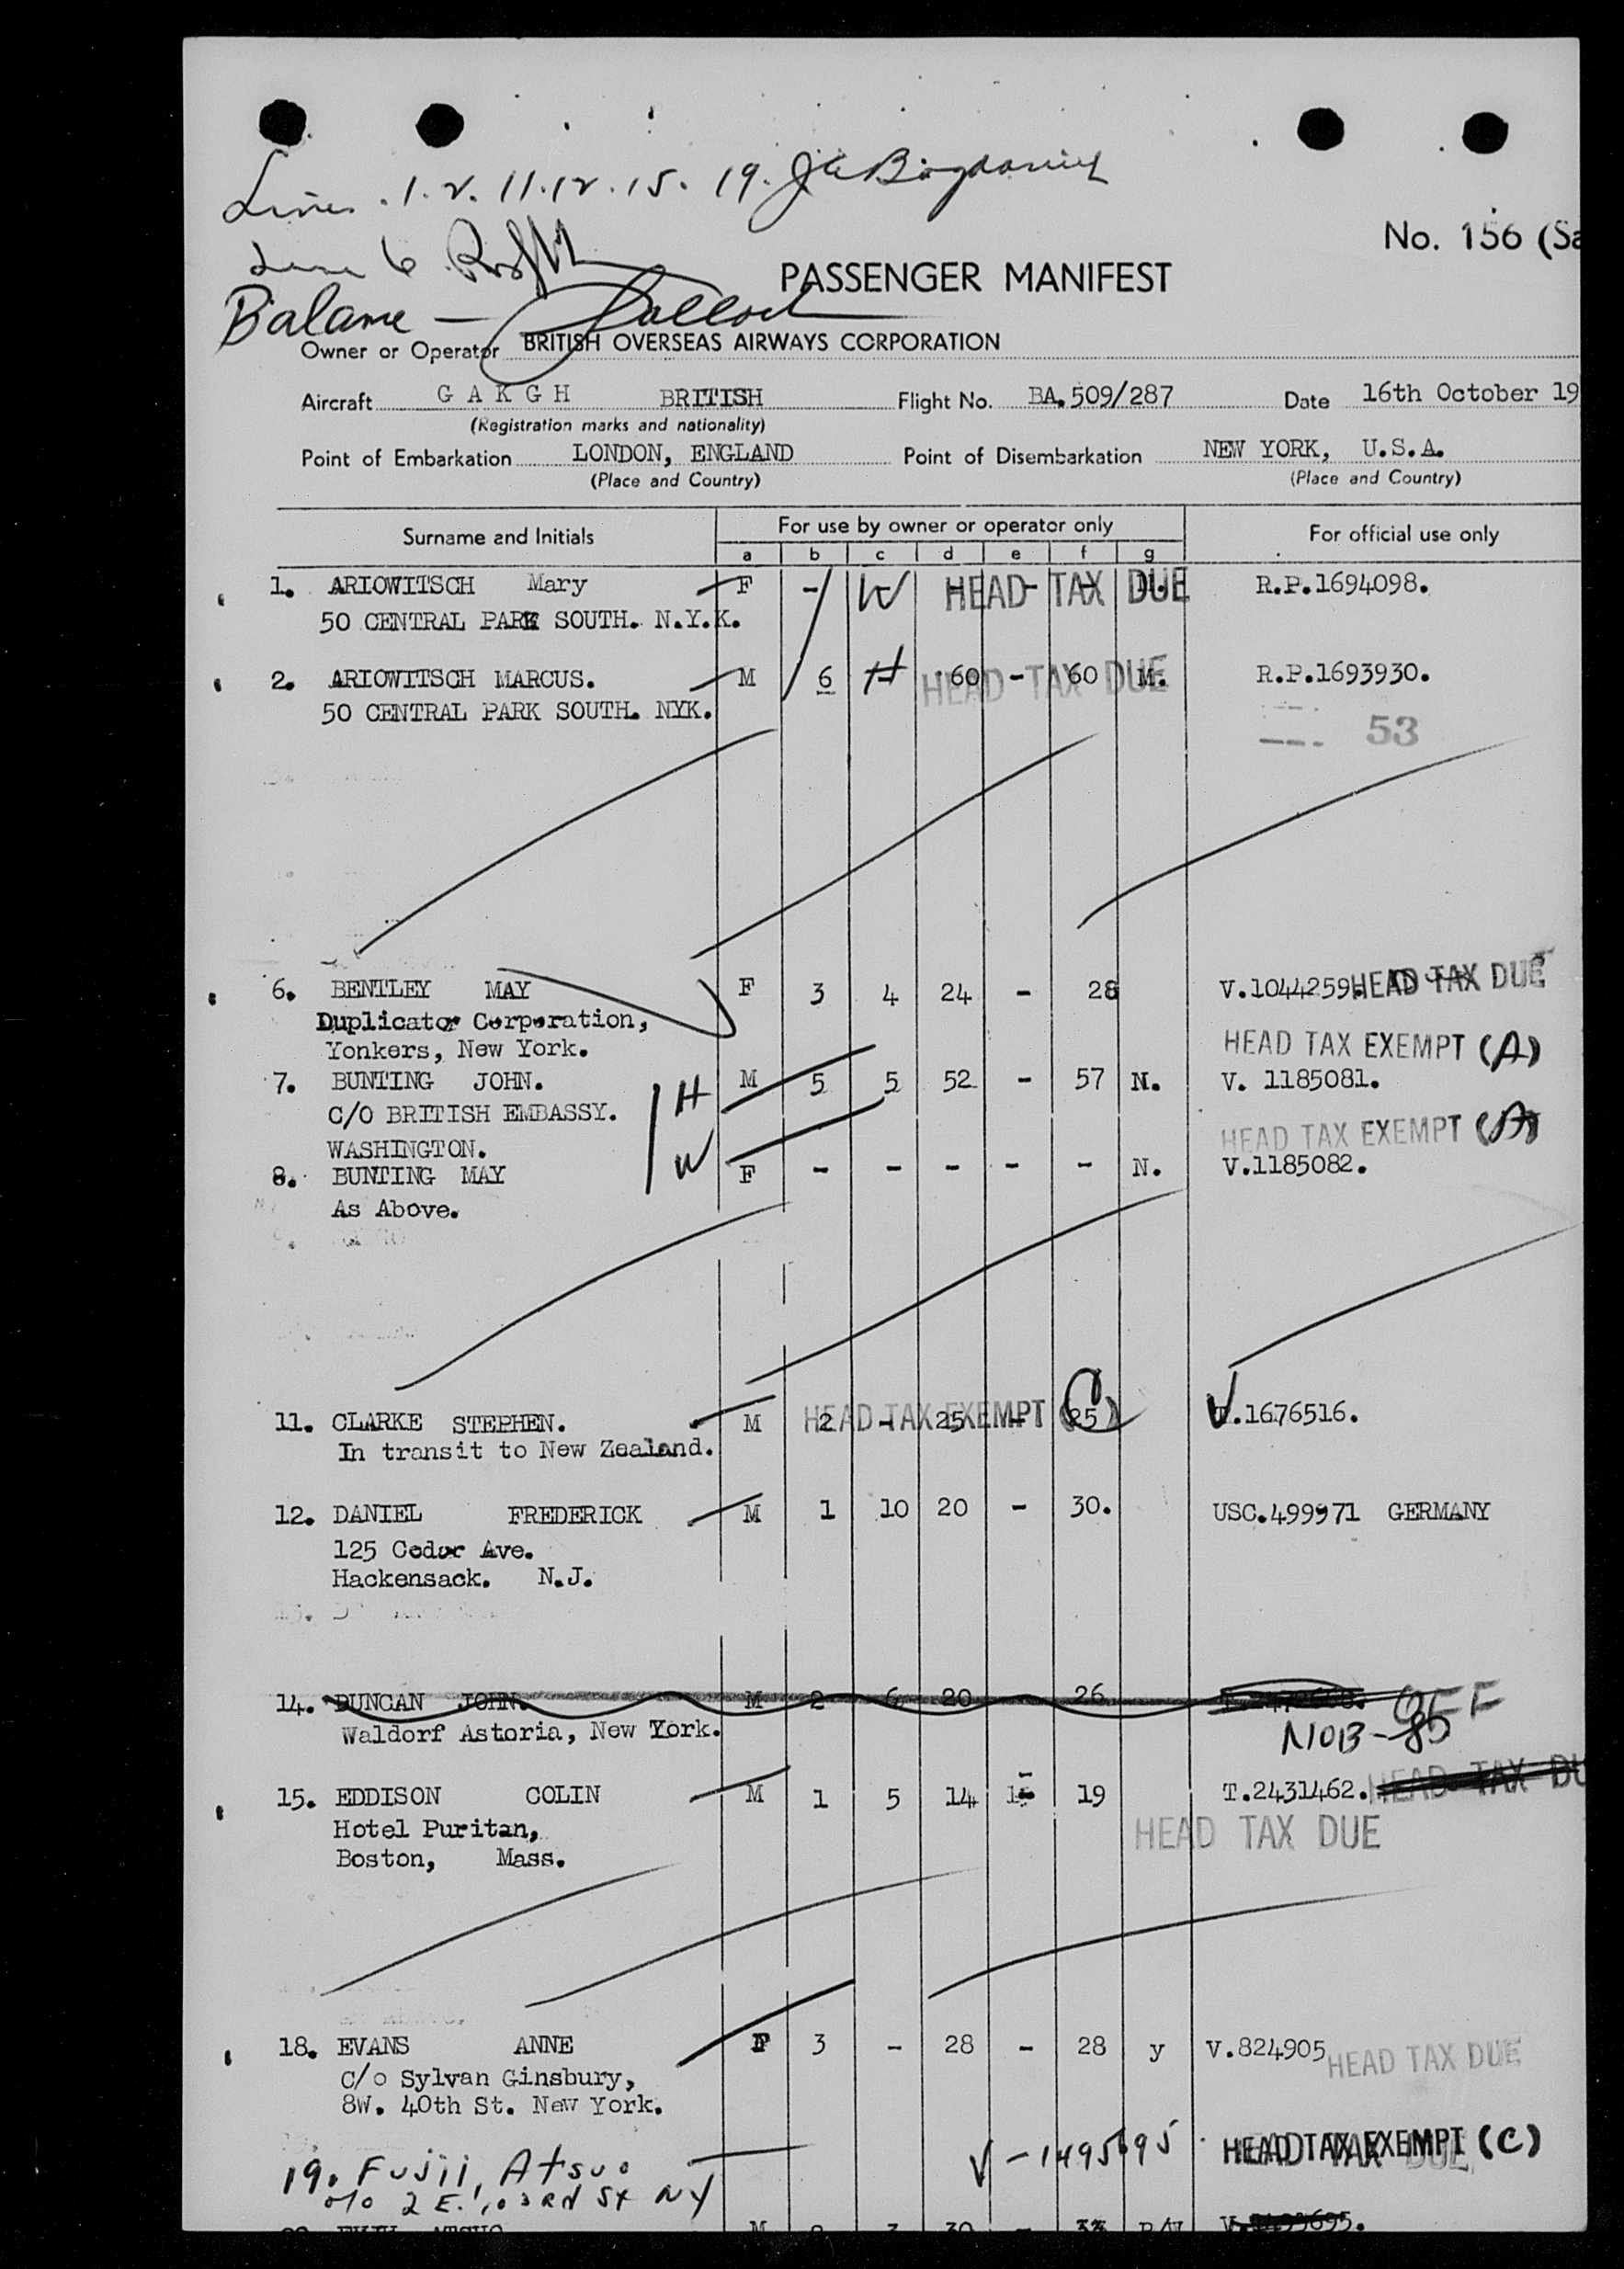 Lines . 1. 2. 11. 12. 15. 19.
No. 156 (Sa
Line 6
PASSENGER MANIFEST
Balance —
Owner or Operator BRITISH OVERSEAS AIRWAYS CORPORATION
Aircraft G A K G H BRITISH Flight No. BA.509/287 Date 16th October 19
(Registration marks and nationality)
Point of Embarkation LONDON, ENGLAND Point of Disembarkation NEW YORK, U.S.A.
(Place and Country) (Place and Country)
Surname and Initials For use by owner or operator only For official use only
a b c d e f g
1. ARIOWITSCH Mary F - W HEAD TAX DUE R.P.1694098.
50 CENTRAL PARK SOUTH. N.Y.K.
2. ARIOWITSCH MARCUS. M 6 H 60 - 60 M. HEAD TAX DUE R.P.1693930.
50 CENTRAL PARK SOUTH. NYK.
53
6. BENTLEY MAY F 3 4 24 - 28 V.1044259. HEAD TAX DUE
Duplicator Corporation,
Yonkers, New York. HEAD TAX EXEMPT (A)
7. BUNTING JOHN. H M 5 5 52 - 57 N. V. 1185081.
C/O BRITISH EMBASSY.
WASHINGTON. W HEAD TAX EXEMPT (A)
8. BUNTING MAY F - - - - - N. V.1185082.
As Above.
11. CLARKE STEPHEN. M 2 - 25 - 25 HEAD TAX EXEMPT (C) V.1676516.
In transit to New Zealand.
12. DANIEL FREDERICK M 1 10 20 - 30. USC.499971 GERMANY
125 Cedar Ave.
Hackensack. N.J.
14. DUNCAN JOHN. M 2 6 20 - 26 OFF
Waldorf Astoria, New York. NOB-85
15. EDDISON COLIN M 1 5 14 - 19 T.2431462. HEAD TAX DU
Hotel Puritan, HEAD TAX DUE
Boston, Mass.
18. EVANS ANNE F 3 - 28 - 28 y V.824905 HEAD TAX DUE
C/o Sylvan Ginsbury,
8W. 40th St. New York.
19. Fujii, Atsuo V-1495695 HEAD TAX EXEMPT (C)
c/o 2 E. 103RD St NY